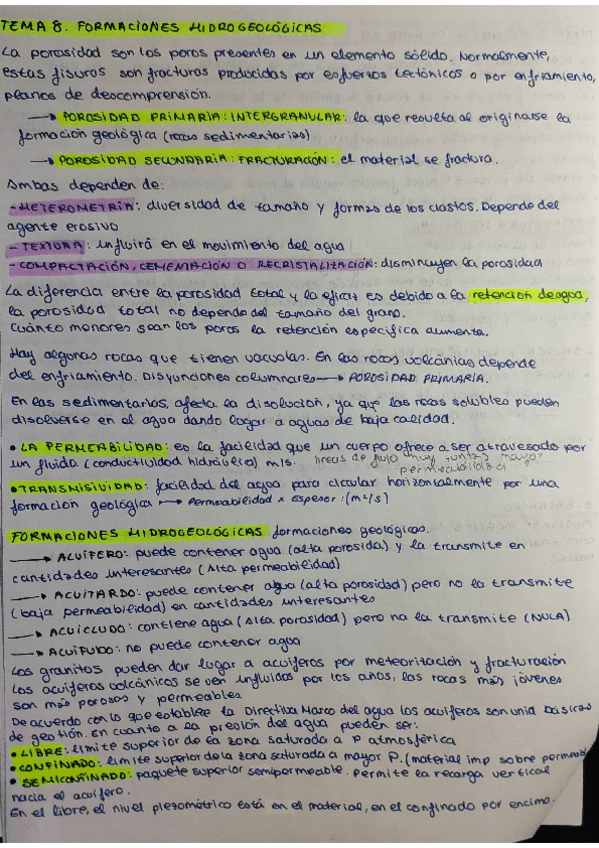 TEMA 8. FORMACIONES HIDROGEOLÓGICAS
La porosidad son los poros presentes en un elemento sólido. Normalmente,
estas fisuras son fracturas producidas por esfuerzos tectónicos o por enfriamiento,
planos de descompresión.
→ POROSIDAD PRIMARIA: INTERGRANULAR: la que resulta al originarse la
formación geológica (rocas sedimentarias)
→ POROSIDAD SECUNDARIA: FRACTURACIÓN: el material se fractura.
Ambas dependen de:
- HETEROMETRÍA: diversidad de tamaño y formas de los clastos. Depende del
agente erosivo
- TEXTURA: influirá en el movimiento del agua
- COMPACTACIÓN, CEMENTACIÓN O RECRISTALIZACIÓN: disminuyen la porosidad
La diferencia entre la porosidad total y la eficaz es debido a la retención de agua,
la porosidad total no depende del tamaño del grano.
Cuánto menores sean los poros la retención específica aumenta.
Hay algunas rocas que tienen vacuolas. En las rocas volcánicas depende
del enfriamiento. Disyunciones columnares → POROSIDAD PRIMARIA.
En las sedimentarias, afecta la disolución, ya que las rocas solubles pueden
disolverse en el agua dando lugar a aguas de baja calidad.
• LA PERMEABILIDAD: es la facilidad que un cuerpo ofrece a ser atravesado por
un fluido. (conductividad hidráulica) m/s. líneas de flujo muy juntas mayor
permeabilidad
• TRANSMISIVIDAD: facilidad del agua para circular horizontalmente por una
formación geológica → Permeabilidad x espesor: (m²/s)
FORMACIONES HIDROGEOLÓGICAS formaciones geológicas.
→ ACUÍFERO: puede contener agua (alta porosida) y la transmite en
cantidades interesantes (Alta permeabilidad)
→ ACUITARDO: puede contener agua (alta porosidad) pero no la transmite
(baja permeabilidad) en cantidades interesantes
→ ACUICLUDO: contiene agua (Alta porosidad) pero no la transmite (NULA)
→ ACUIFUDO: no puede contener agua
Los granitos pueden dar lugar a acuíferos por meteorización y fracturación
Los acuíferos volcánicos se ven influidos por los años, las rocas más jóvenes
son más porosos y permeables
De acuerdo con lo que establece la Directiva Marco del agua los acuíferos son unid básicas
de gestión. En cuanto a la presión del agua pueden ser:
• LIBRE: límite superior de la zona saturada a P atmosférica
• CONFINADO: límite superior de la zona saturada a mayor P. (material imp sobre permeable
• SEMICONFINADO: paquete superior semipermeable. Permite la recarga vertical
hacia el acuífero.
En el libre, el nivel piezométrico está en el material, en el confinado por encima.